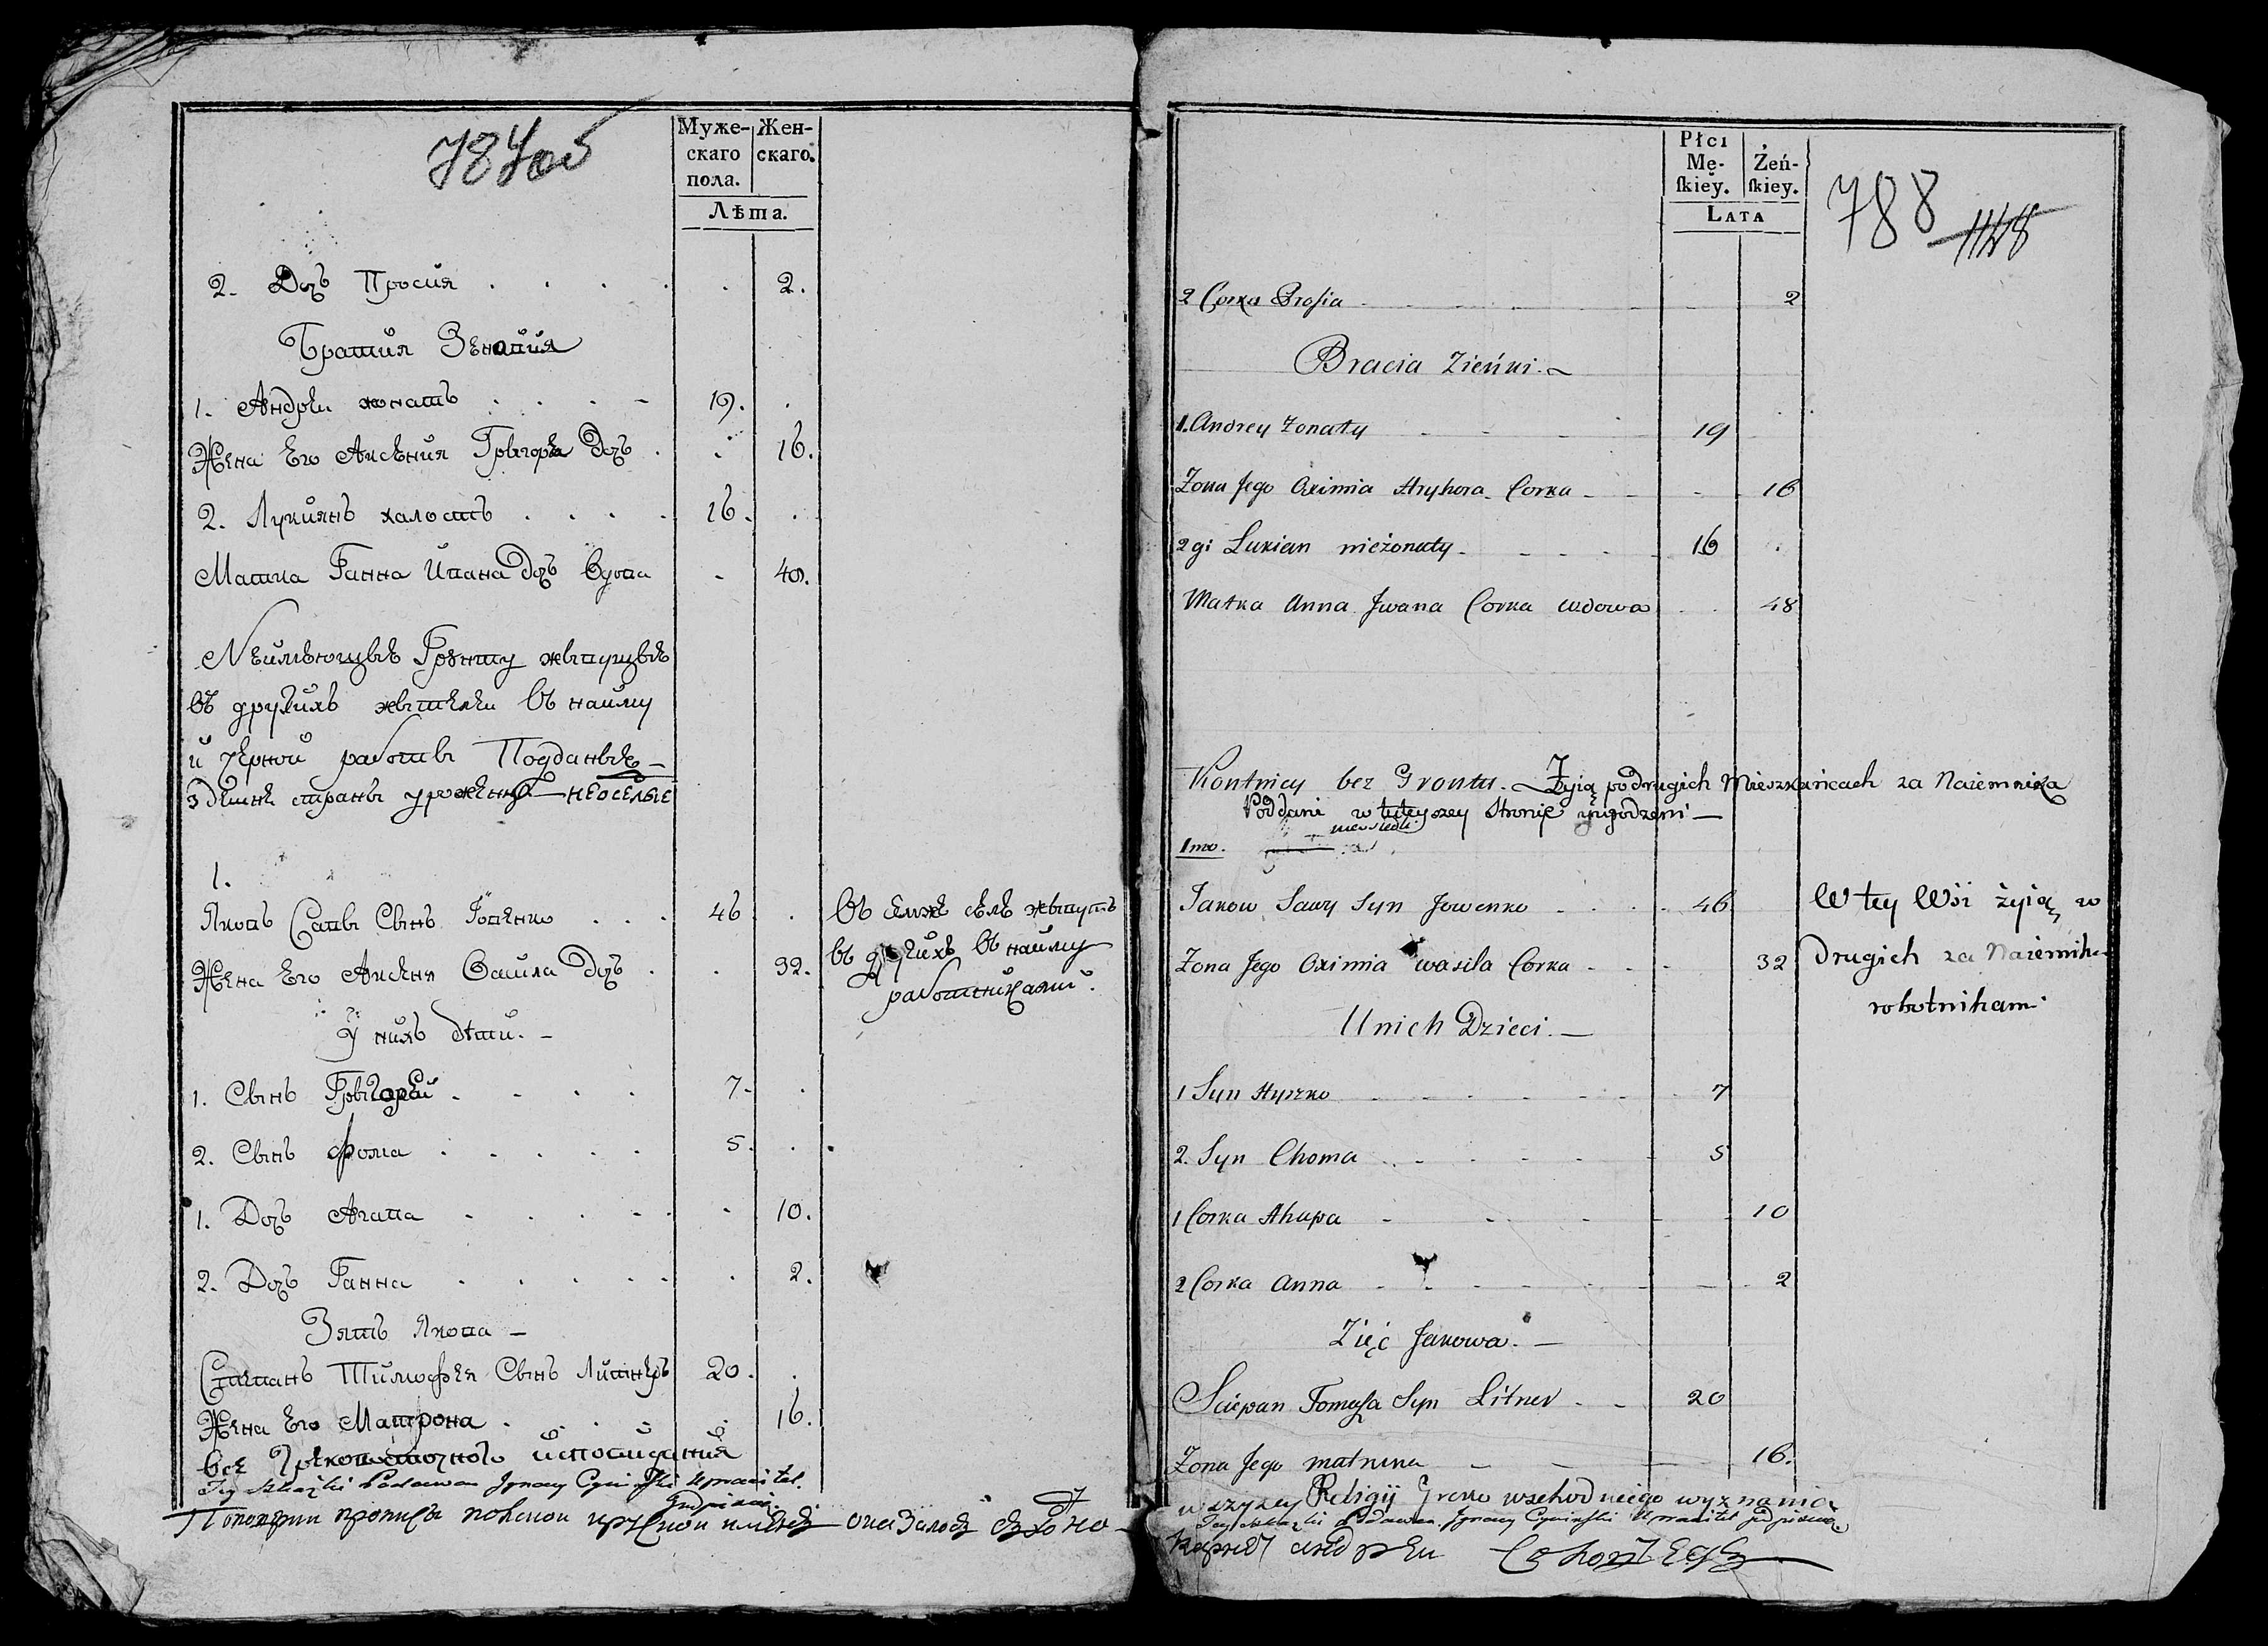 787об
Муже-
скаго
пола.
Жен-
скаго.
Лѣта.
2. Дочь Просия 2.
Братия Зеновия
1. Андреи жонатъ 19.
Жена Его Аксения Грыгоря Дочь 16.
2. Лукиянъ халостъ 16.
Матка Ганна Ивана Дочь вдова
Неимѣющые Грунту жывущые
въ другихъ жытелеи въ найму
и черной работы Подданые
здешне страны урожены неоселые
1.
Яковъ Савы Сынъ 46
Жена Его Аксеня Васила Дочь 32.
Въ селе жывутъ
въ другихъ въ найму
работниками.
У нихъ дѣти.
1. Сынъ Грыгорей 7.
2. Сынъ Фома 5.
1. Дочь Агапа 10.
2. Дочь Ганна 2.
Зять Якова
Степанъ Тимофея Сынъ Литнеръ 20.
Жена Его Матрона 16.
все Грековосточного исповидания
Płci
Mę-
skiey.
Żeń-
skiey.
LATA
788
2 Corka Prosia 2
Bracia Zieńni.
1. Andrey Żonaty 19
Żona Jego Oximia Hryhora Corka 16
2gi Lukian nieżonaty 16
Matka Anna Jwana Corka wdowa 48
Kontnicy bez Grontu. Żyią po drugich Mieszkańcach za Naiemnika
Poddani w tuteyszey Stronie
nieosiedli
1mo.
Jakow Sawy Syn Jowenko 46
Żona Jego Oximia Wasila Corka 32
W tey Wsi żyią w
drugich za Naiemnik
robotnikami
U nich Dzieci.
1 Syn Hryszko 7
2. Syn Choma 5
1 Corka Ahapa 10
2 Corka Anna 2
Zięć Jakowa.
Sciepan Tomasza Syn Litner 20
Żona Jego Matruna 16.
wszyscy Religij Greko wschodniego wyznania